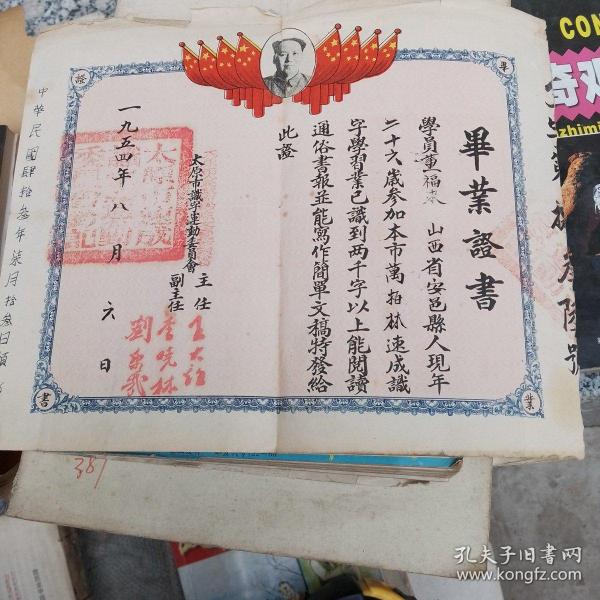 畢業證書
學員董福來 山西省安邑縣人現年
二十六歲參加本市萬柏林速成識
字學習業已識到两千字以上能閱讀
通俗書報並能寫作簡單文稿特發給
此證
太原市識字運動委員會
主任
副主任
一九五四年八月六日
證
畢
書
業
中華民國肆拾叁年柒月拾叁日
381
CON
奇观
zhimi
孔夫子旧书网
www.kongfz.com